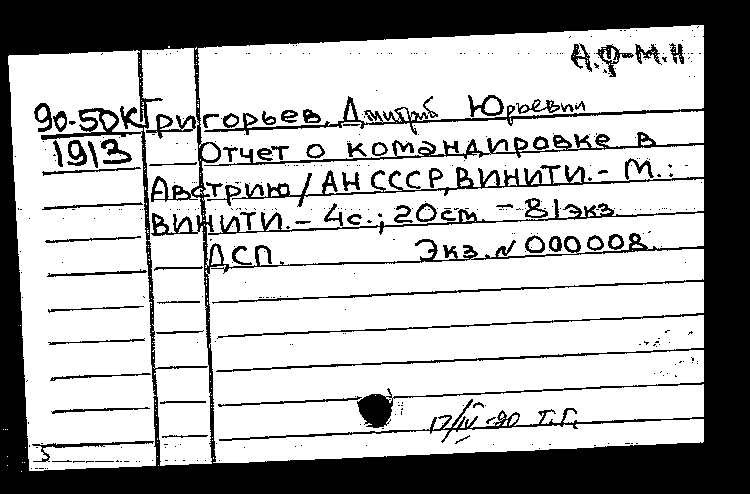 А.Ф-М.Н
90-5DK Григорьев, Дмитрий Юрьевич
1913 Отчет о командировке в
Австрию / АН СССР, ВИНИТИ. - М.:
ВИНИТИ. - 4с.; 20см. - 81экз
ДСП. Экз. N 000008.
17/IV-90 Т.Г.
5